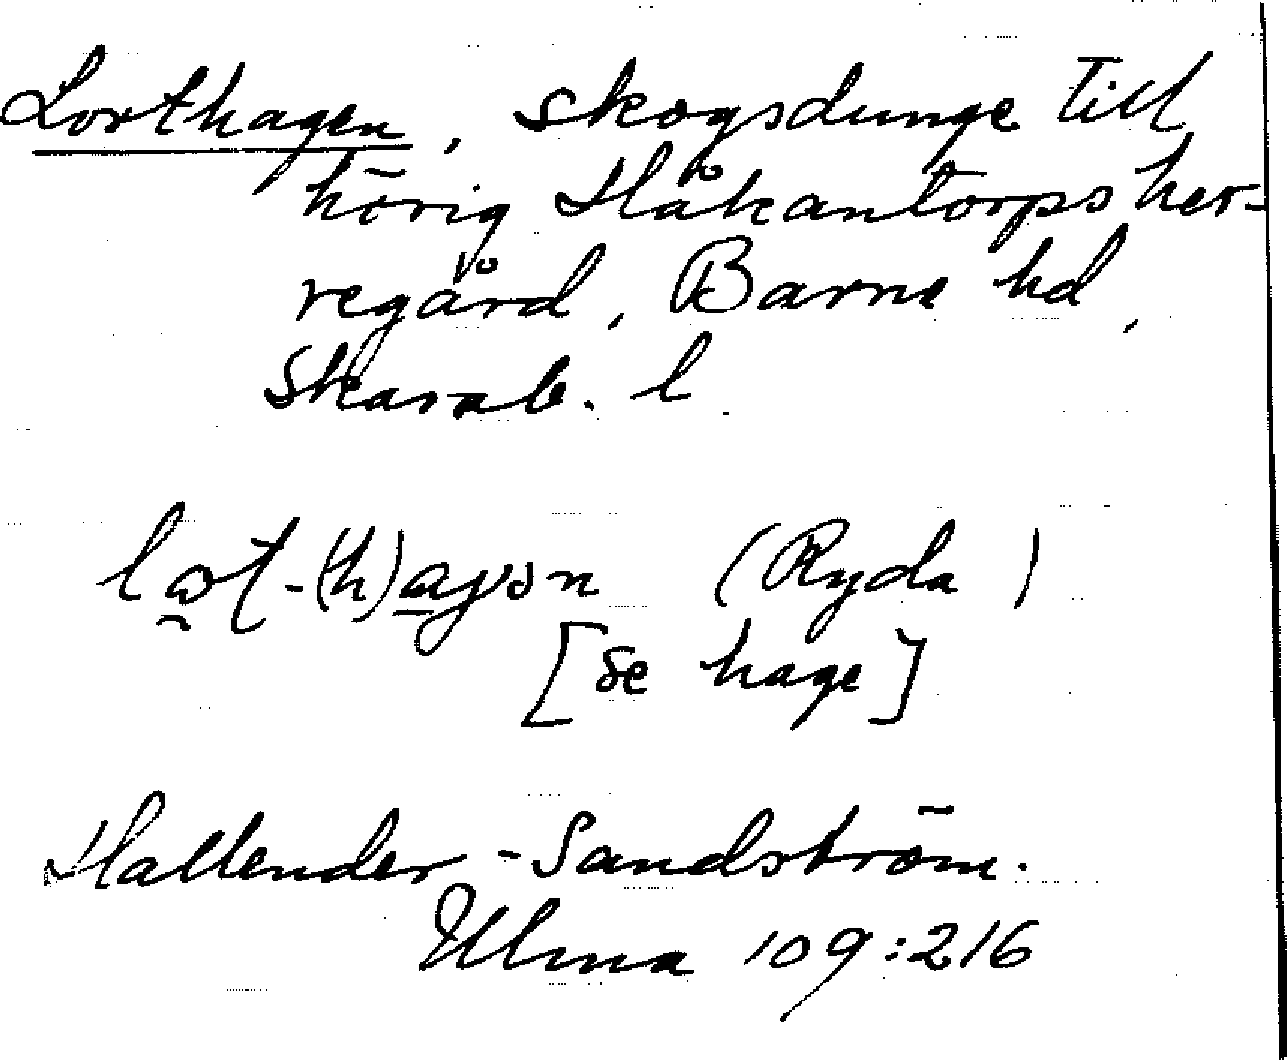 Lorthagen, skogsdunge till
hörig Håkantorps her-
regård, Barne hd,
Skarab. l.
(Ryda)
[se hage]
Hallender-Sandström.
Ulma 109:216